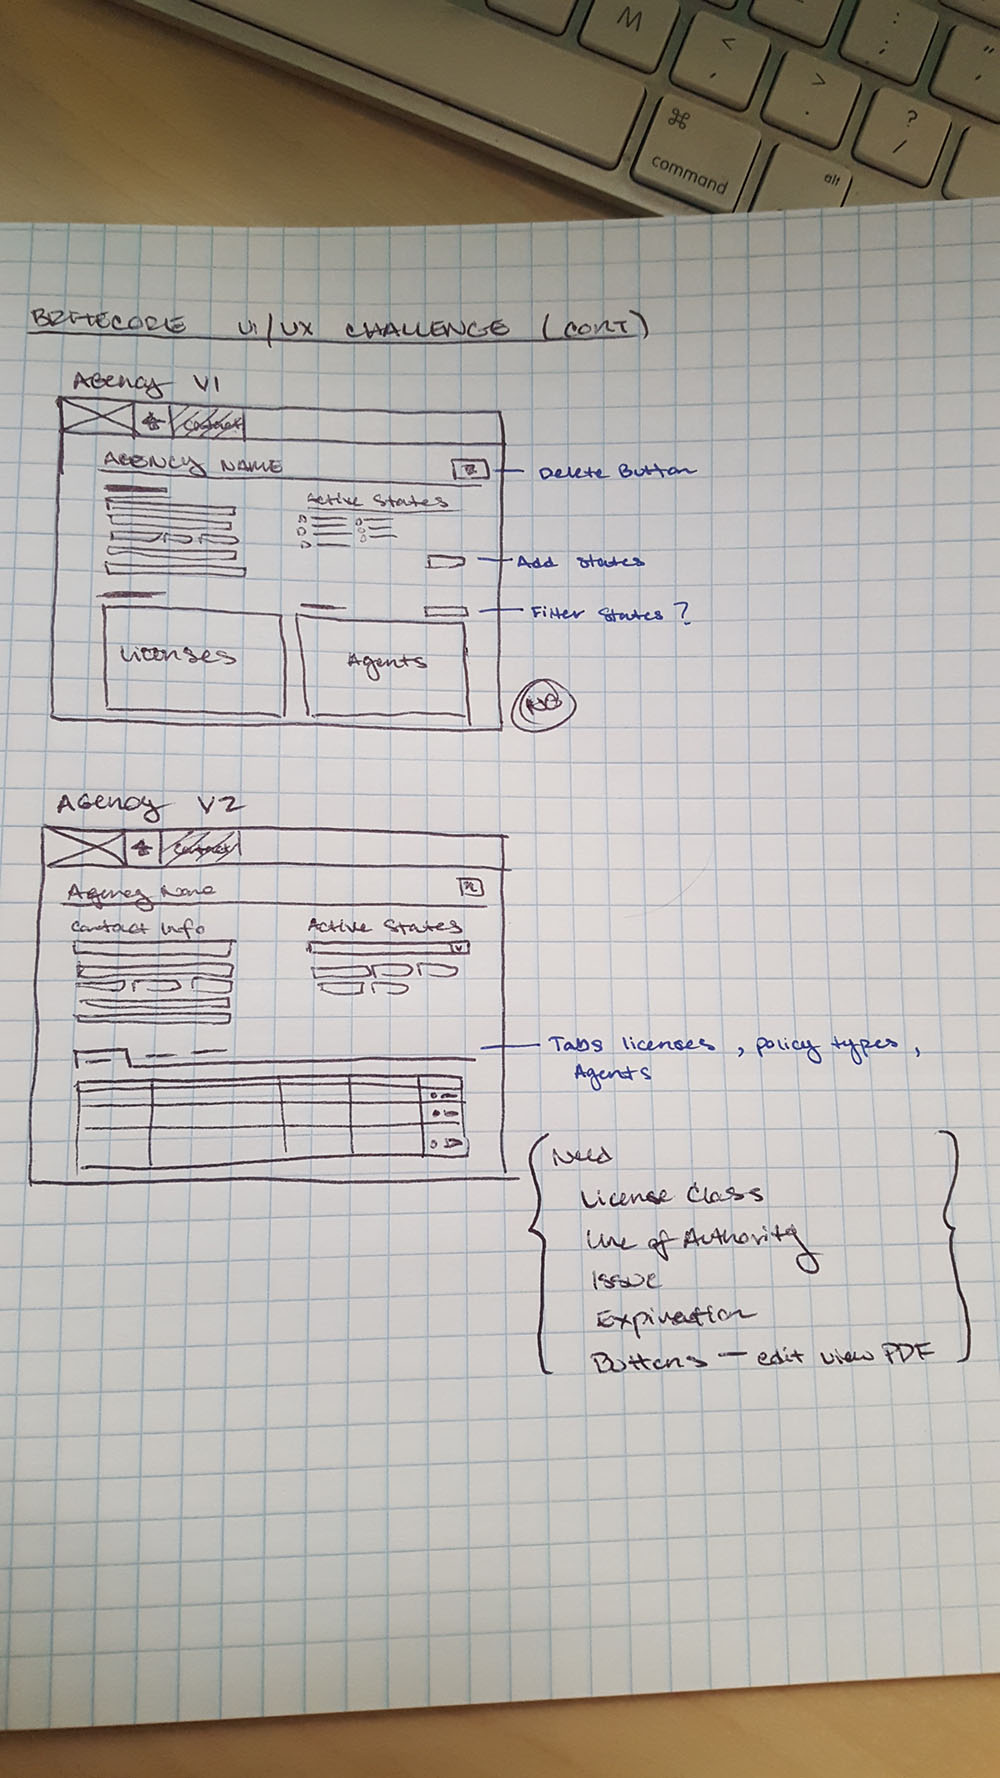 M
<
,
>
.
:
;
"
,
?
/
⌘
command
alt
BRITECORE UI/UX CHALLENGE (CONT)
Agency V1
Contact
AGENCY NAME
Delete Button
Active States
Add States
Filter States?
Licenses
Agents
NO
Agency V2
Contact
Agency Name
Contact Info
Active States
Tabs licenses, policy types,
Agents
Need
License Class
Line of Authority
Issue
Expiration
Buttons — edit view PDF